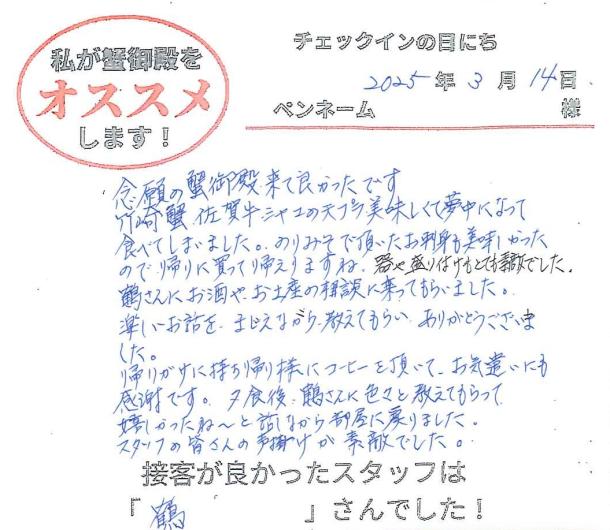 私が蟹御殿を
オススメ
します！
チェックインの日にち
2025年3月14日
ペンネーム 様
念願の蟹御殿、来て良かったです
竹崎蟹、佐賀牛、シャコの天プラ美味しくて夢中になって
食べてしまいました。のりみそで頂いたお刺身も美味しかった
ので帰りに買って帰えりますね。器や盛り付けもとても素敵でした。
鶴さんにお酒や、お土産の相談に乗ってもらいました。
楽しいお話を、まじえながら、教えてもらい、ありがとうございま
した。
帰りがけに持ち帰り様にコーヒーを頂いて、お気遣いにも
感謝です。夕食後、鶴さんに色々と教えてもらって
嬉しかったね〜と話しながら部屋に戻りました。
スタッフの皆さんの声掛けが素敵でした。
接客が良かったスタッフは
「 鶴 」さんでした！